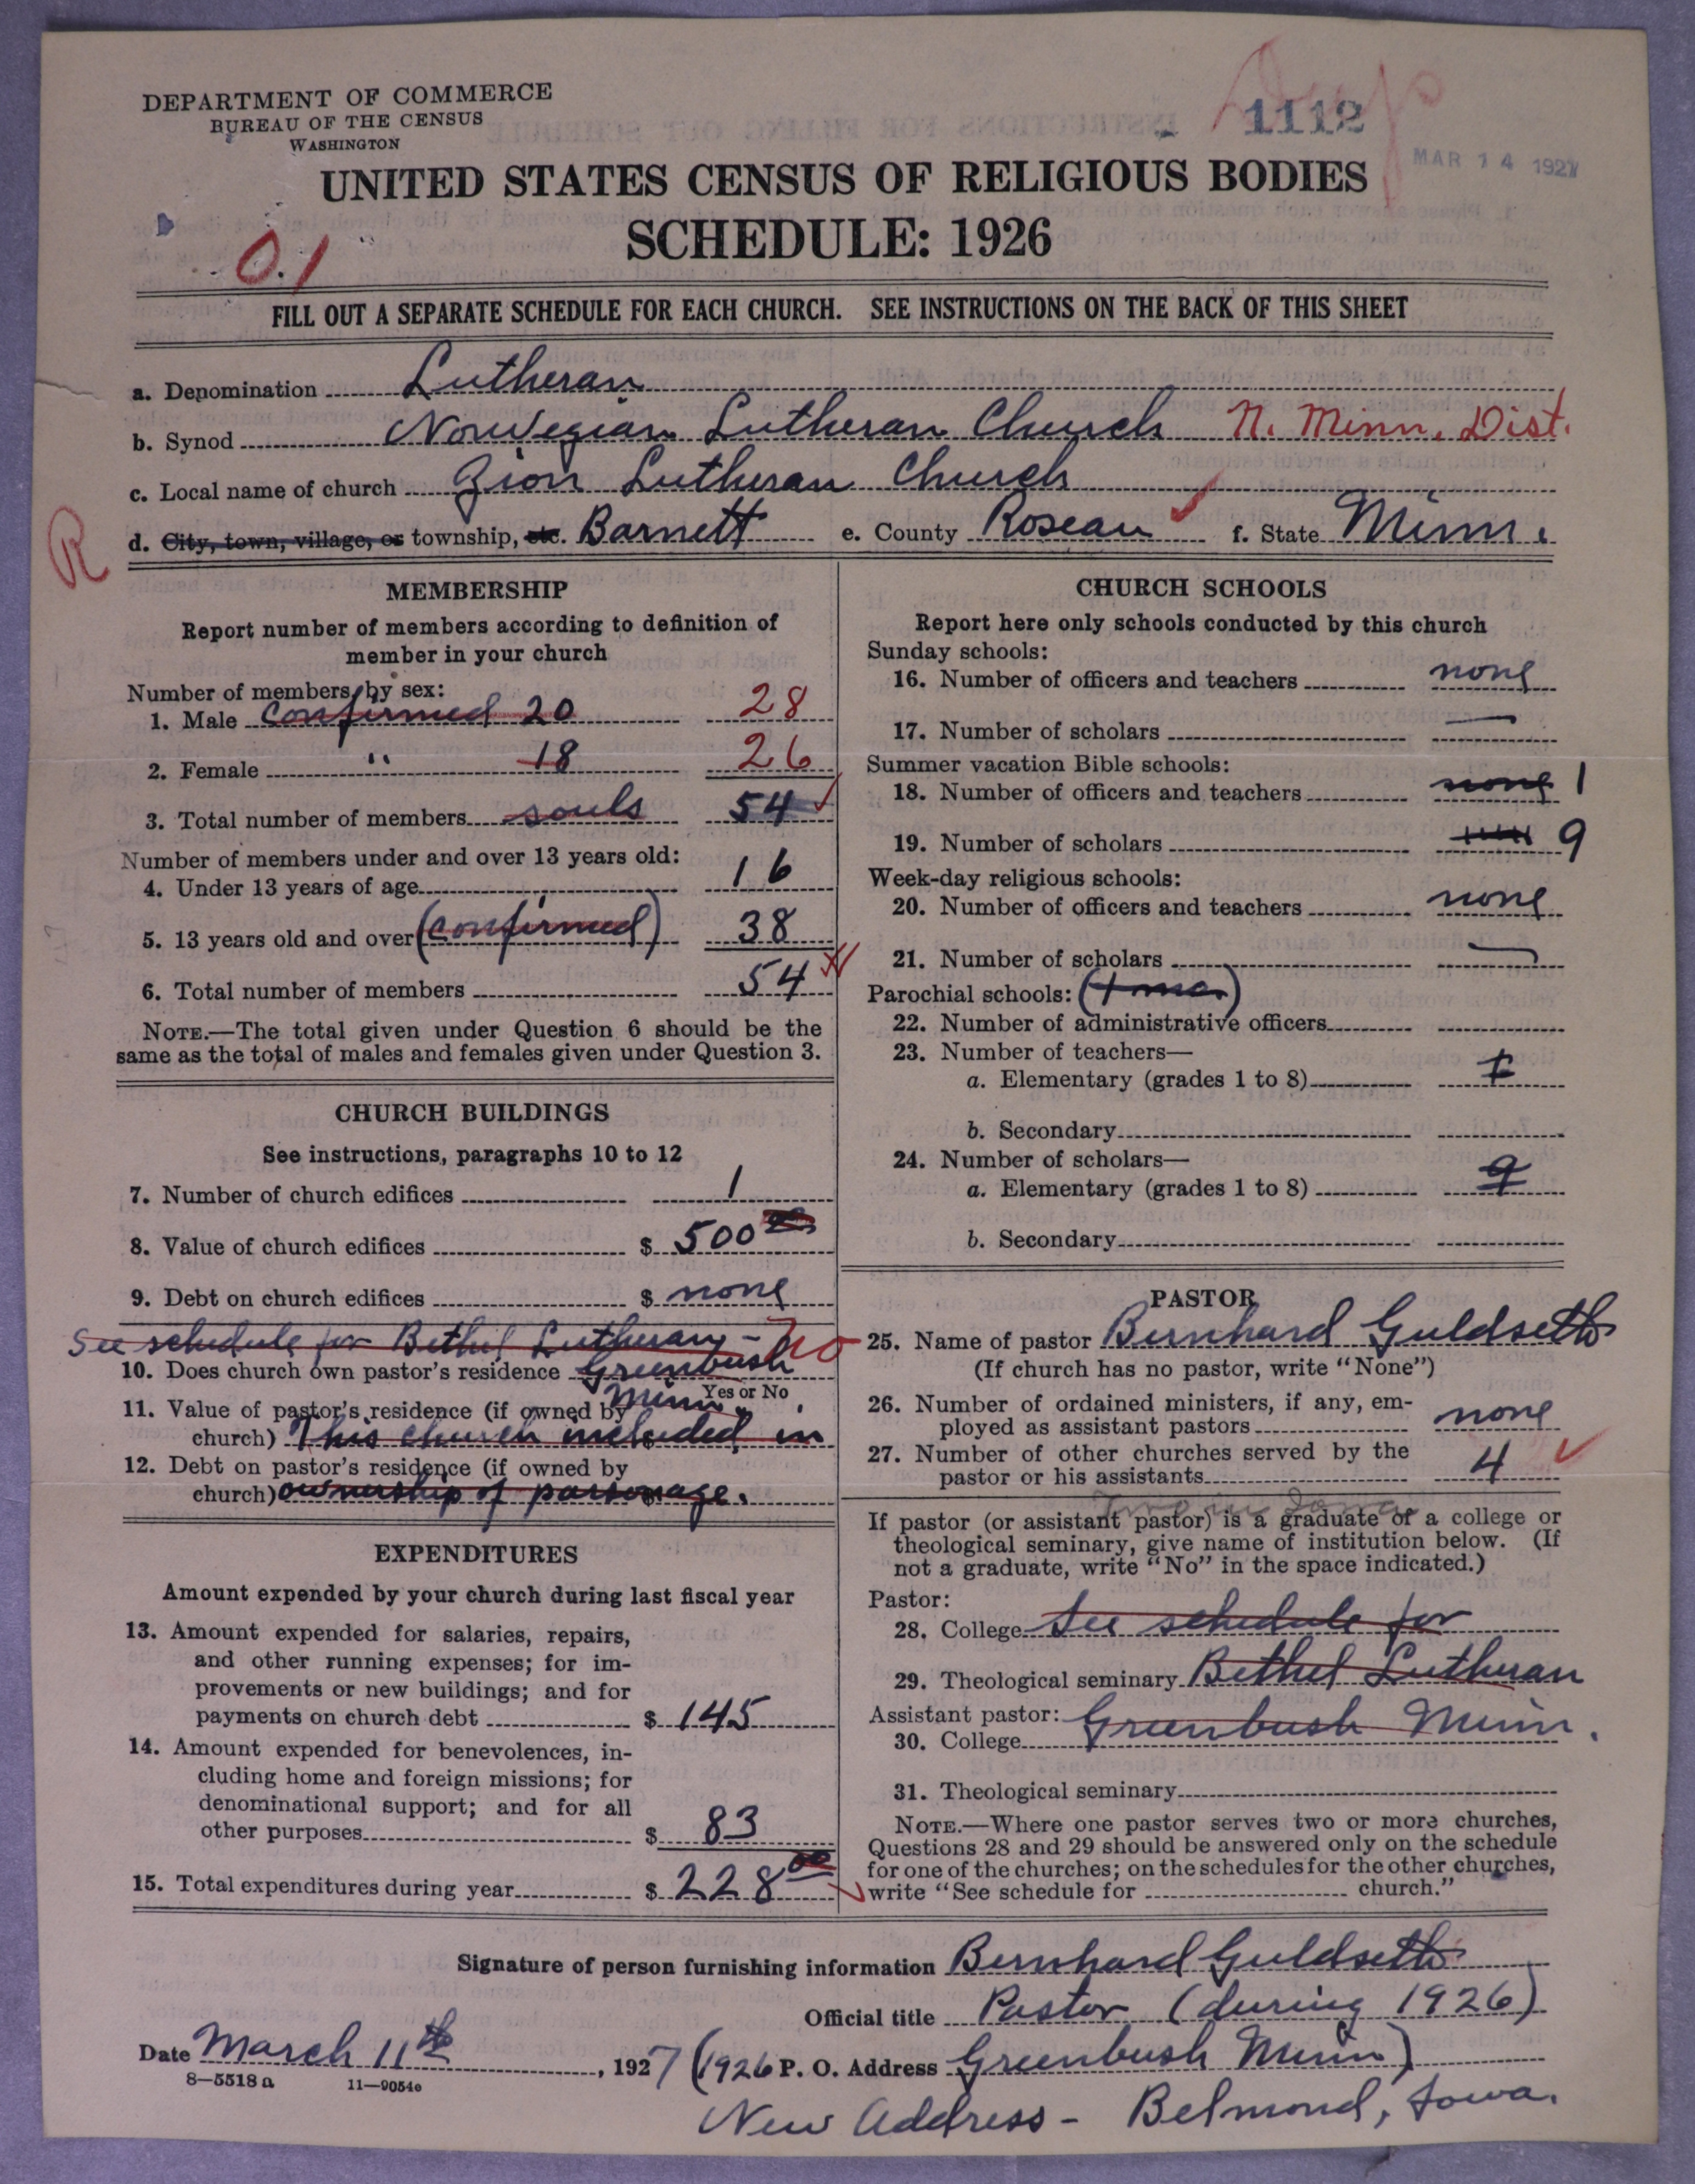 DEPARTMENT OF COMMERCE
BUREAU OF THE CENSUS
WASHINGTON
Dup
1112
MAR 14 1927
UNITED STATES CENSUS OF RELIGIOUS BODIES
SCHEDULE: 1926
0.1
FILL OUT A SEPARATE SCHEDULE FOR EACH CHURCH. SEE INSTRUCTIONS ON THE BACK OF THIS SHEET
a. Denomination Lutheran
b. Synod Norwegian Lutheran Church N. Minn. Dist.
c. Local name of church Zion Lutheran Church
R
d. City, town, village, or township, etc. Barnett e. County Roseau f. State Minn.
MEMBERSHIP
Report number of members according to definition of
member in your church
Number of members by sex:
1. Male confirmed 20 28
2. Female " 18 26
3. Total number of members souls 54
Number of members under and over 13 years old:
4. Under 13 years of age 16
5. 13 years old and over (confirmed) 38
6. Total number of members 54
NOTE.—The total given under Question 6 should be the
same as the total of males and females given under Question 3.
CHURCH BUILDINGS
See instructions, paragraphs 10 to 12
7. Number of church edifices 1
8. Value of church edifices $ 500 00
9. Debt on church edifices $ none
See schedule for Bethel Lutheran - no
10. Does church own pastor's residence Greenbush
Yes or No
Minn.
11. Value of pastor's residence (if owned by
church) This church included in
12. Debt on pastor's residence (if owned by
church) ownership of parsonage.
EXPENDITURES
Amount expended by your church during last fiscal year
13. Amount expended for salaries, repairs,
and other running expenses; for im-
provements or new buildings; and for
payments on church debt $ 145
14. Amount expended for benevolences, in-
cluding home and foreign missions; for
denominational support; and for all
other purposes $ 83
15. Total expenditures during year $ 228 00
CHURCH SCHOOLS
Report here only schools conducted by this church
Sunday schools:
16. Number of officers and teachers none
17. Number of scholars —
Summer vacation Bible schools:
18. Number of officers and teachers none 1
19. Number of scholars 9
Week-day religious schools:
20. Number of officers and teachers none
21. Number of scholars —
Parochial schools: (1 mo.)
22. Number of administrative officers
23. Number of teachers—
a. Elementary (grades 1 to 8) 1
b. Secondary
24. Number of scholars—
a. Elementary (grades 1 to 8) 9
b. Secondary
PASTOR
25. Name of pastor Bernhard Guldseth
(If church has no pastor, write "None")
26. Number of ordained ministers, if any, em-
ployed as assistant pastors none
27. Number of other churches served by the
pastor or his assistants 4
Two in Iowa
If pastor (or assistant pastor) is a graduate of a college or
theological seminary, give name of institution below. (If
not a graduate, write "No" in the space indicated.)
Pastor:
28. College See schedule for
29. Theological seminary Bethel Lutheran
Assistant pastor: Greenbush Minn.
30. College
31. Theological seminary
NOTE.—Where one pastor serves two or more churches,
Questions 28 and 29 should be answered only on the schedule
for one of the churches; on the schedules for the other churches,
write "See schedule for church."
Signature of person furnishing information Bernhard Guldseth
Official title Pastor (during 1926)
Date March 11th, 1927 (1926 P. O. Address Greenbush Minn)
8—5518 a 11—9054c
New Address - Belmond, Iowa.